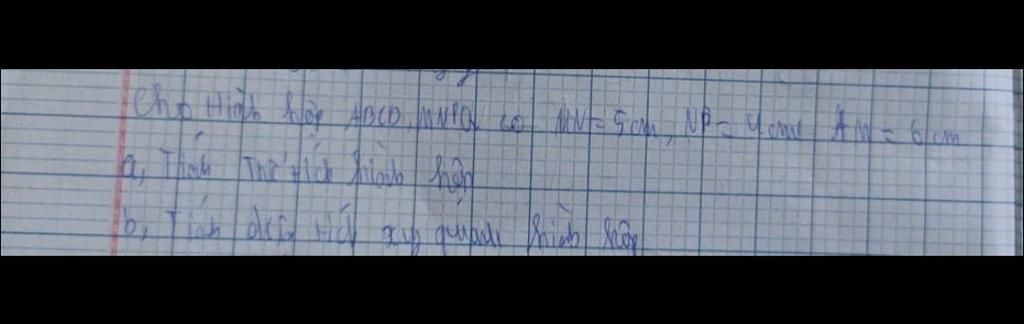 Cho Hình hộp ABCD.MNPQ có MN = 5 cm, NP = 4 cm AM = 6 cm
a, Tính Thể tích hình hộp
b, Tính diện tích xung quanh hình hộp